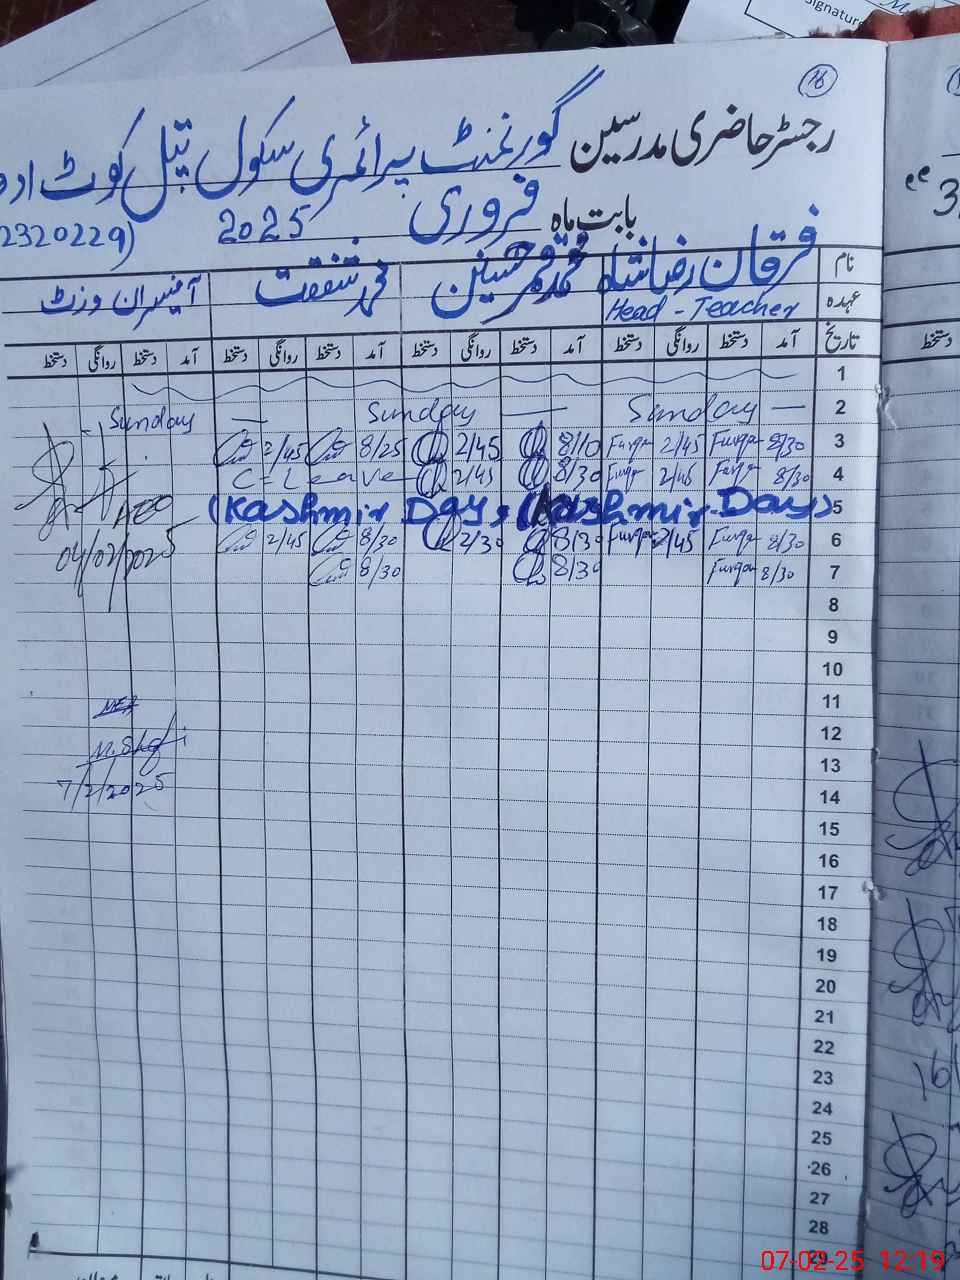 Signature
16
رجسٹر حاضری مدرسین گورنمنٹ پرائمری سکول بیل کوٹ ادو
بابت ماہ فروری 2025 2320229)
نام فرقان رضا شاہ محمد قمر حسنین محمد شفقت آفیسران وزٹ
عہدہ Head-Teacher
تاریخ آمد دستخط روانگی دستخط آمد دستخط روانگی دستخط آمد دستخط روانگی دستخط آمد دستخط روانگی دستخط
1
2 Sunday — Sunday — Sunday
3 8/30 Furqan 2/45 Furqan 8/10 2/45 8/25 2/45
4 8/30 Furqan 2/45 Furqan 8/30 2/45 C-Leave
5 (Kashmir Day, (Kashmir Day)
AEO
6 8/30 Furqan 2/45 Furqan 8/30 2/30 8/30 2/45
04/02/2025
7 8/30 Furqan 8/30 8/30
8
9
10
11
12
M.Shafi
13
7/2/2025
14
15
16
17
18
19
20
21
22
23
24
25
26
27
28
29
دستخط
16
07-02-25 12:19